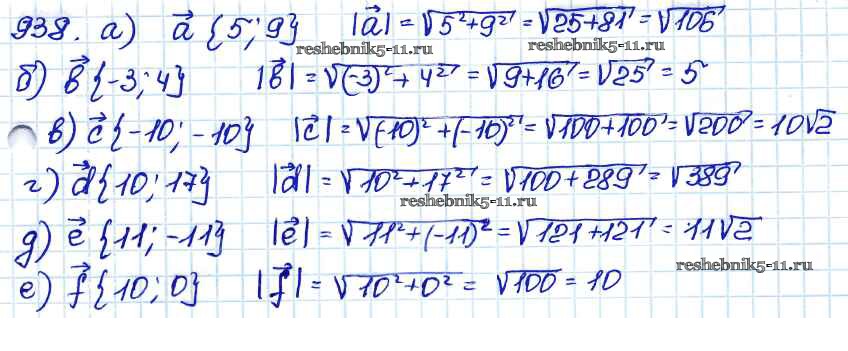 938. а) a⃗ {5; 9} |a⃗| = √(5²+9²) = √(25+81) = √106
reshebnik5-11.ru reshebnik5-11.ru
б) b⃗ {-3; 4} |b⃗| = √((-3)² + 4²) = √(9+16) = √25 = 5
в) c⃗ {-10; -10} |c⃗| = √((-10)² + (-10)²) = √(100+100) = √200 = 10√2
г) d⃗ {10; 17} |d⃗| = √(10² + 17²) = √(100 + 289) = √389
reshebnik5-11.ru
д) e⃗ {11; -11} |e⃗| = √(11² + (-11)²) = √(121 + 121) = 11√2
reshebnik5-11.ru
е) f⃗ {10; 0} |f⃗| = √(10² + 0²) = √100 = 10